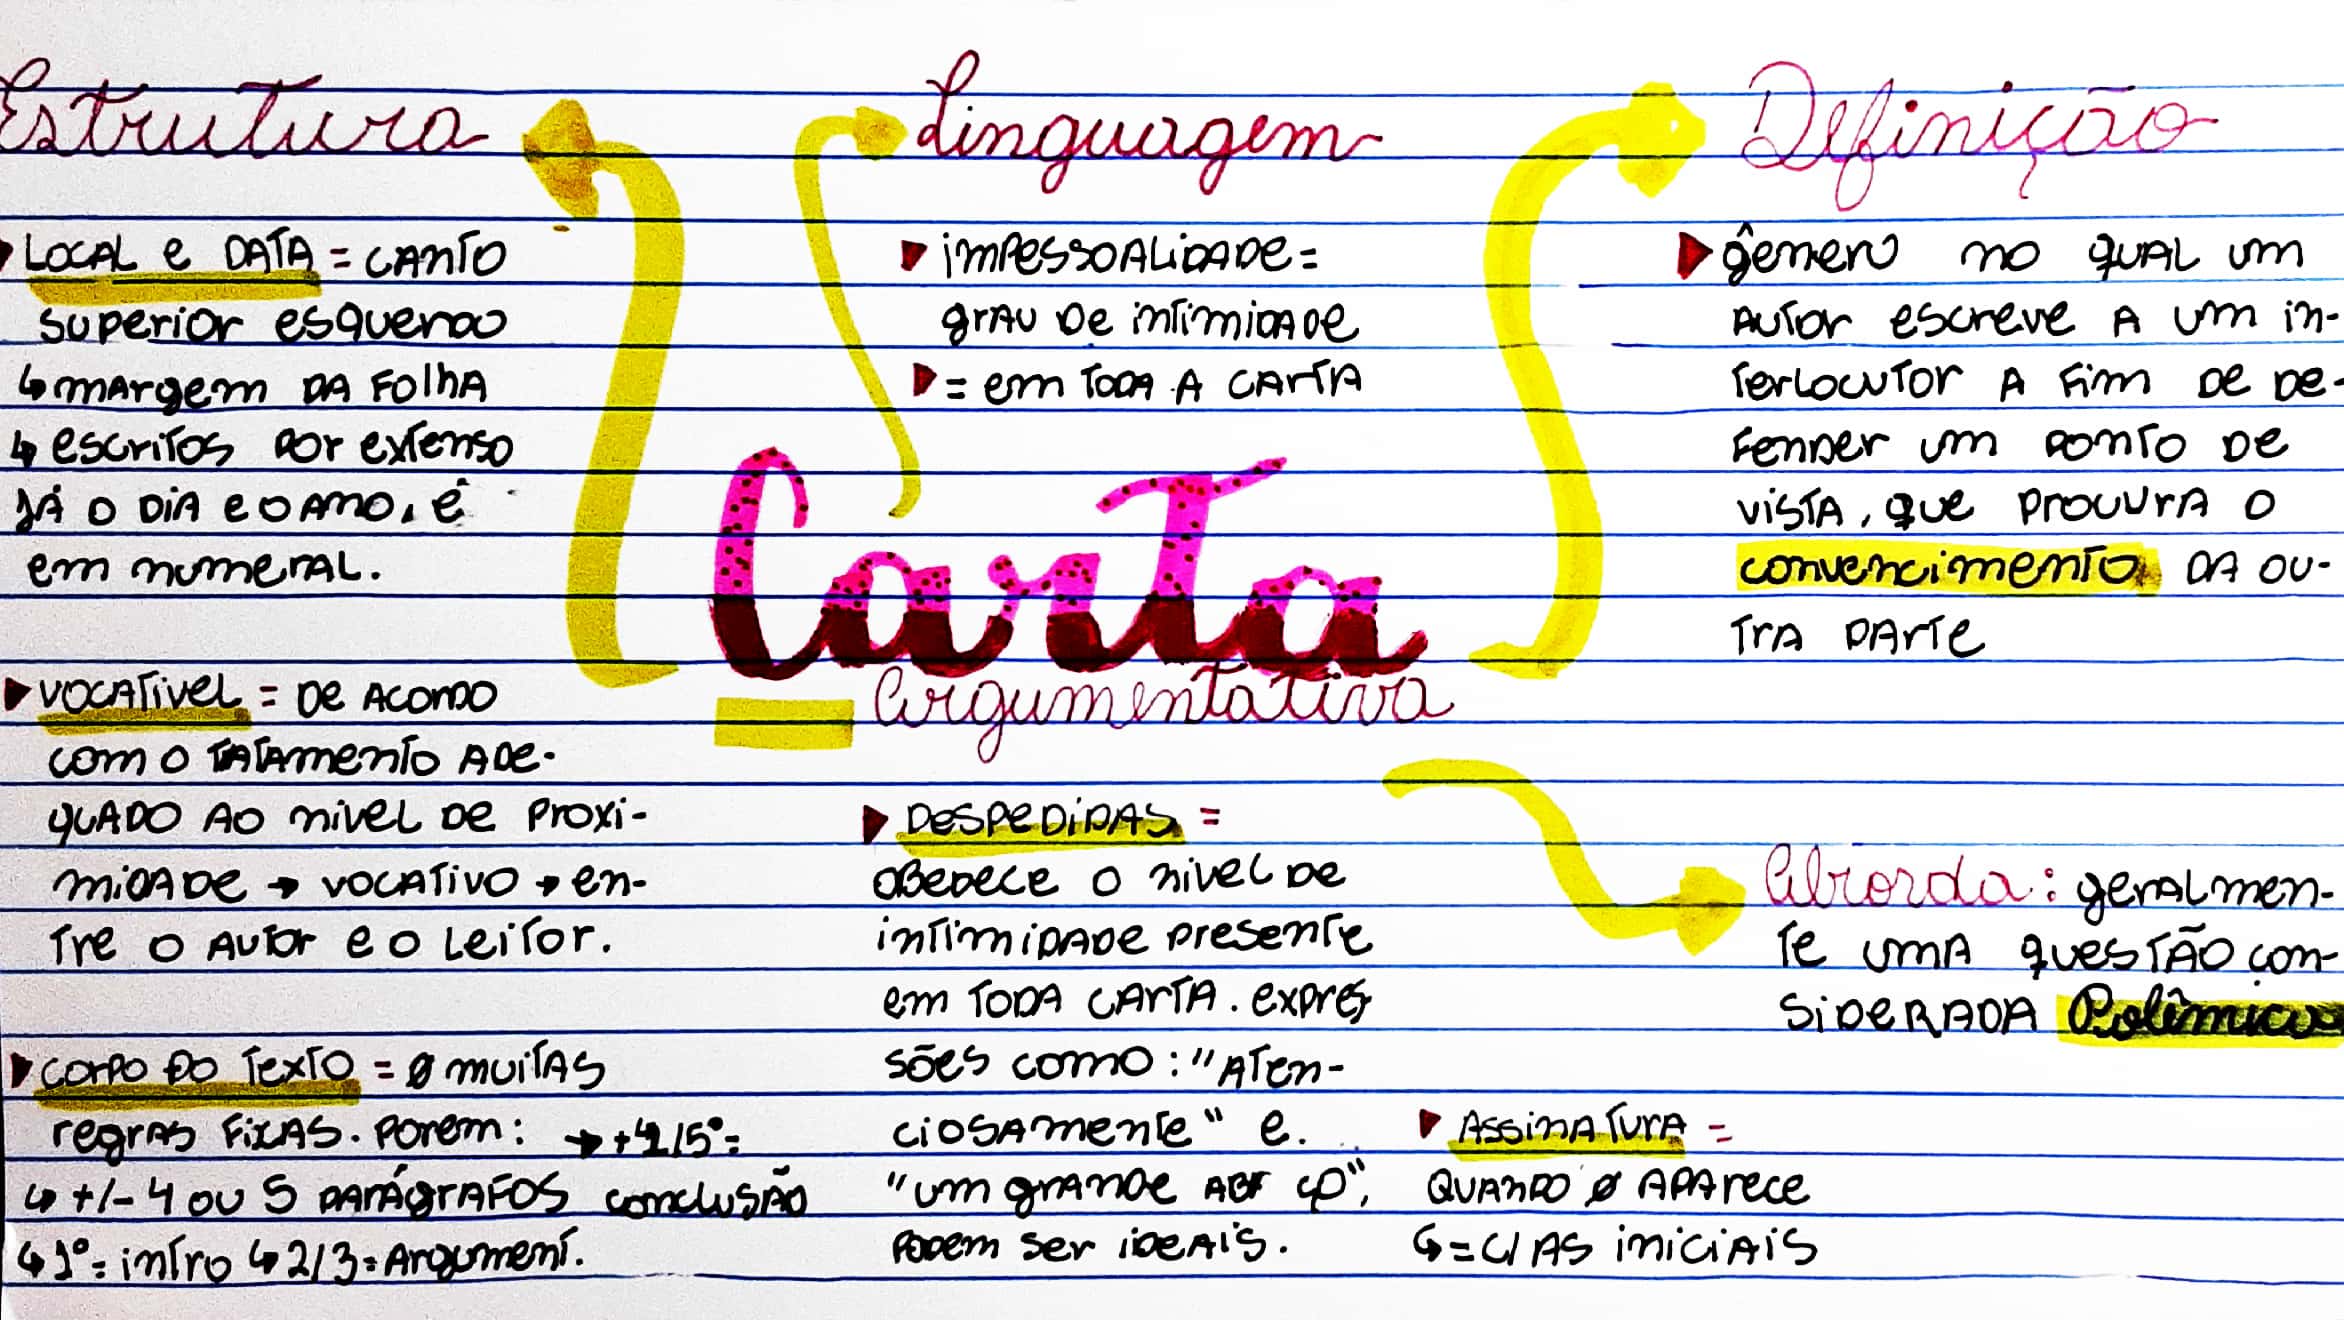 Estrutura
LOCAL e DATA = CANTO
superior esquerdo
↳ margem DA FOLHA
↳ escritos por extenso
JÁ O DIA e O ANO, é
em numeral.
VOCATIVEL = De ACORDO
com o TATAMENTO ADE-
QUADO AO nivel De PROXI-
MIDADE → VOCATIVO → en-
Tre o Autor e o Leitor.
CORPO DO TEXTO = Ø MUITAS
regras Fixas. Porem:
↳ +/- 4 ou 5 PARÁGRAFOS
↳ 1º = intro ↳ 2/3 = Argument.
→ +4/5º =
conclusão
Linguagem
IMPESSOALIDADE =
grau De intimidade
= em TODA A CARTA
Carta
Argumentativa
DESPEDIDAS =
OBEDECE O nivel De
intimidade presente
em TODA CARTA. expres
sões como: "ATEN-
CIOSAmente" e.
"um grande", 
Podem ser ideais.
ASSINATURA =
QUANDO Ø APArece
↳ = C/ AS iniciais
Definição
gêmero no qual um
Autor escreve A um in-
Terlocutor A Fim De De-
Fender um ponto De
vista, que procura o
convencimento DA ou-
TrA parte
Aborda: geralmen-
Te uma questão con-
siderada Polêmica